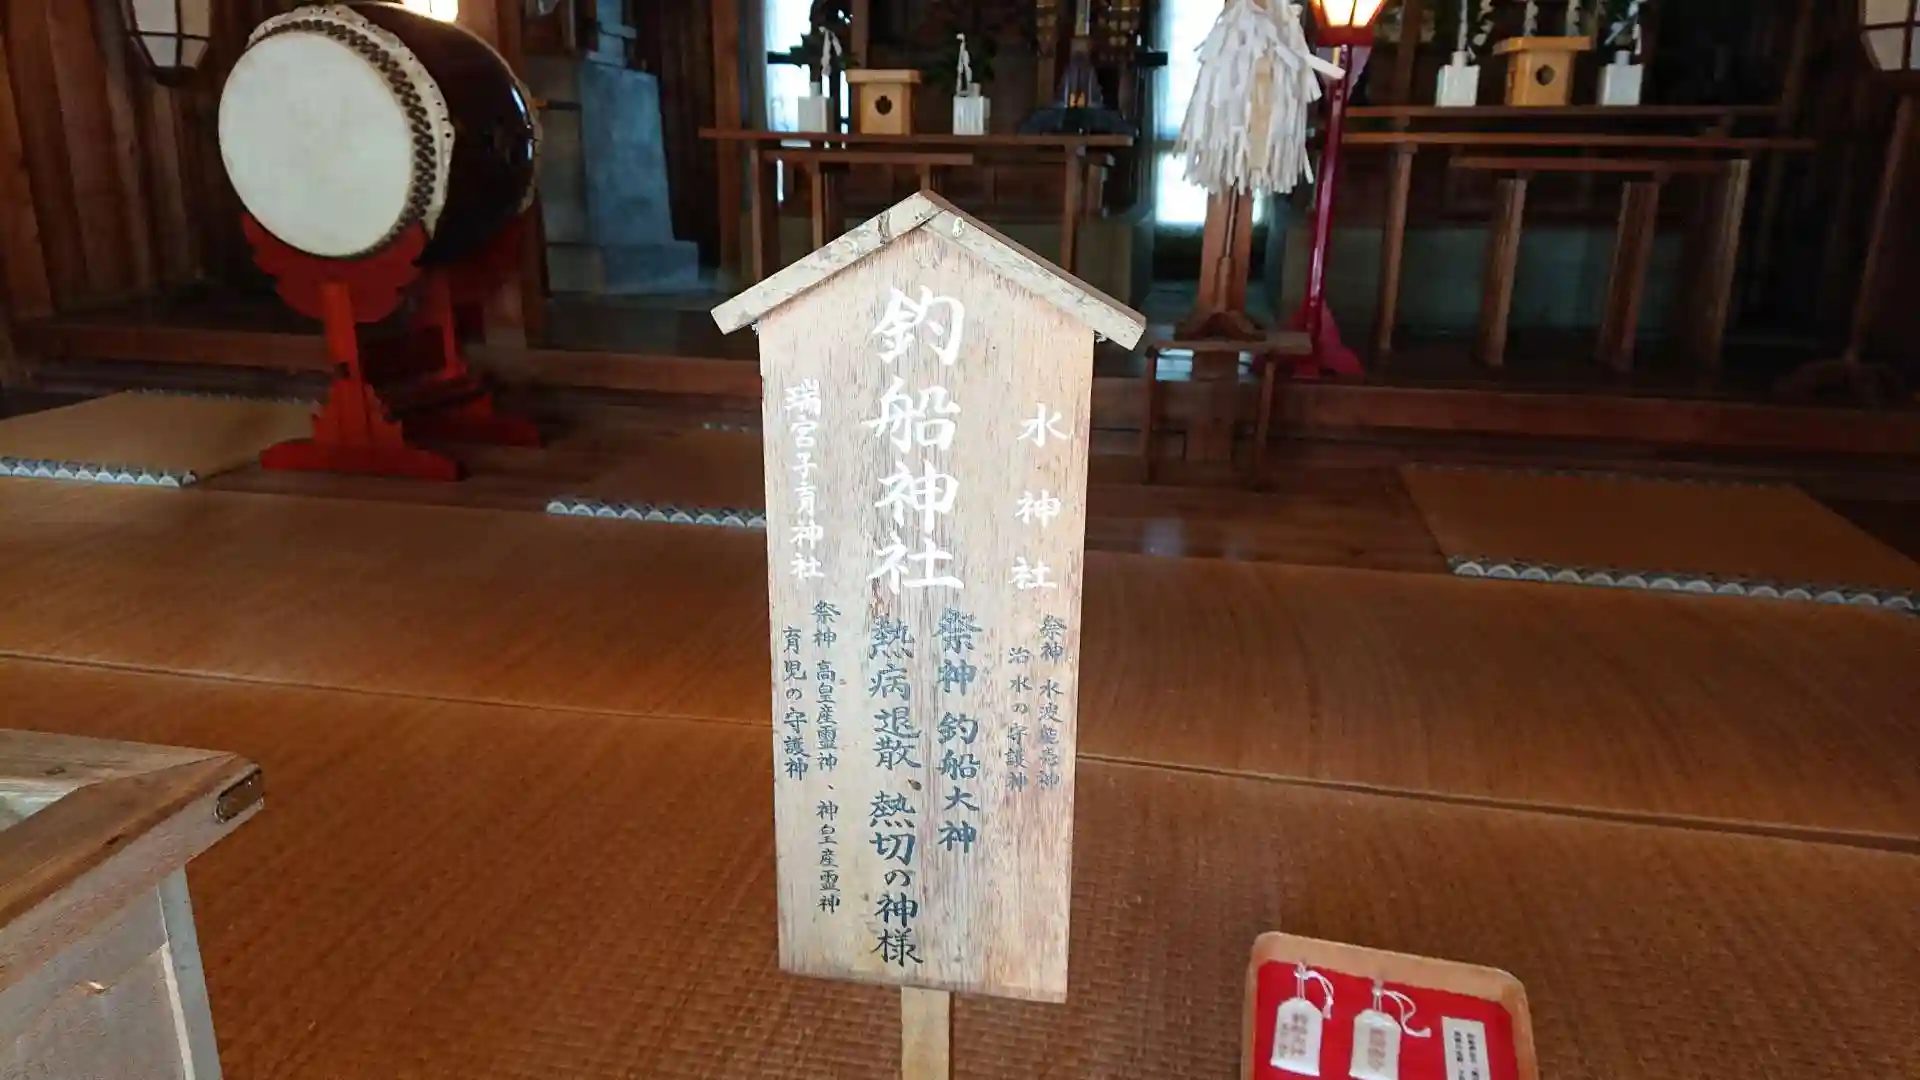 水神社
祭神 水波能売神
治水の守護神
釣船神社
祭神 釣船大神
熱病退散、熱切の神様
瑞宮子育神社
祭神 高皇産霊神、神皇産霊神
育児の守護神